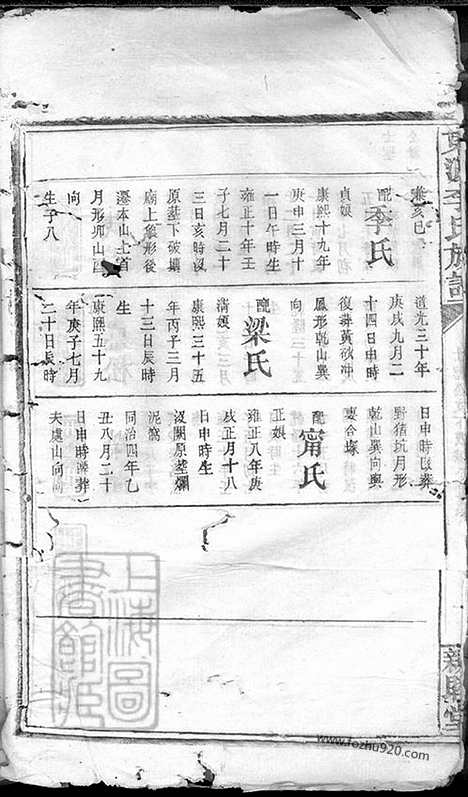 配李氏
貞娘
康熙十九年
庚申三月十
一日午時生
雍正十年壬
子七月二十
三日亥時沒
原墓下破塘
廟上象形後
遷本山上首
月形坤山
向
生子八
道光三十年
庚戌九月二
十四日申時
復葬黃砍冲
鳳形乾山巽
向
配梁氏
清娘
康熙三十五
年丙子三月
十三日辰時
生
康熙五十九
年庚子七月
二十日辰時
日申時改葬
野豬坑月形
乾山巽向與
妻合塚
配甯氏
正娘
雍正八年庚
戌正月十八
日申時生
沒闕原墓爛
泥窩
同治四年乙
丑八月二十
日申時改葬
夫處山向同
李氏族譜
親興堂
上海圖書館
www.fozhu920.com